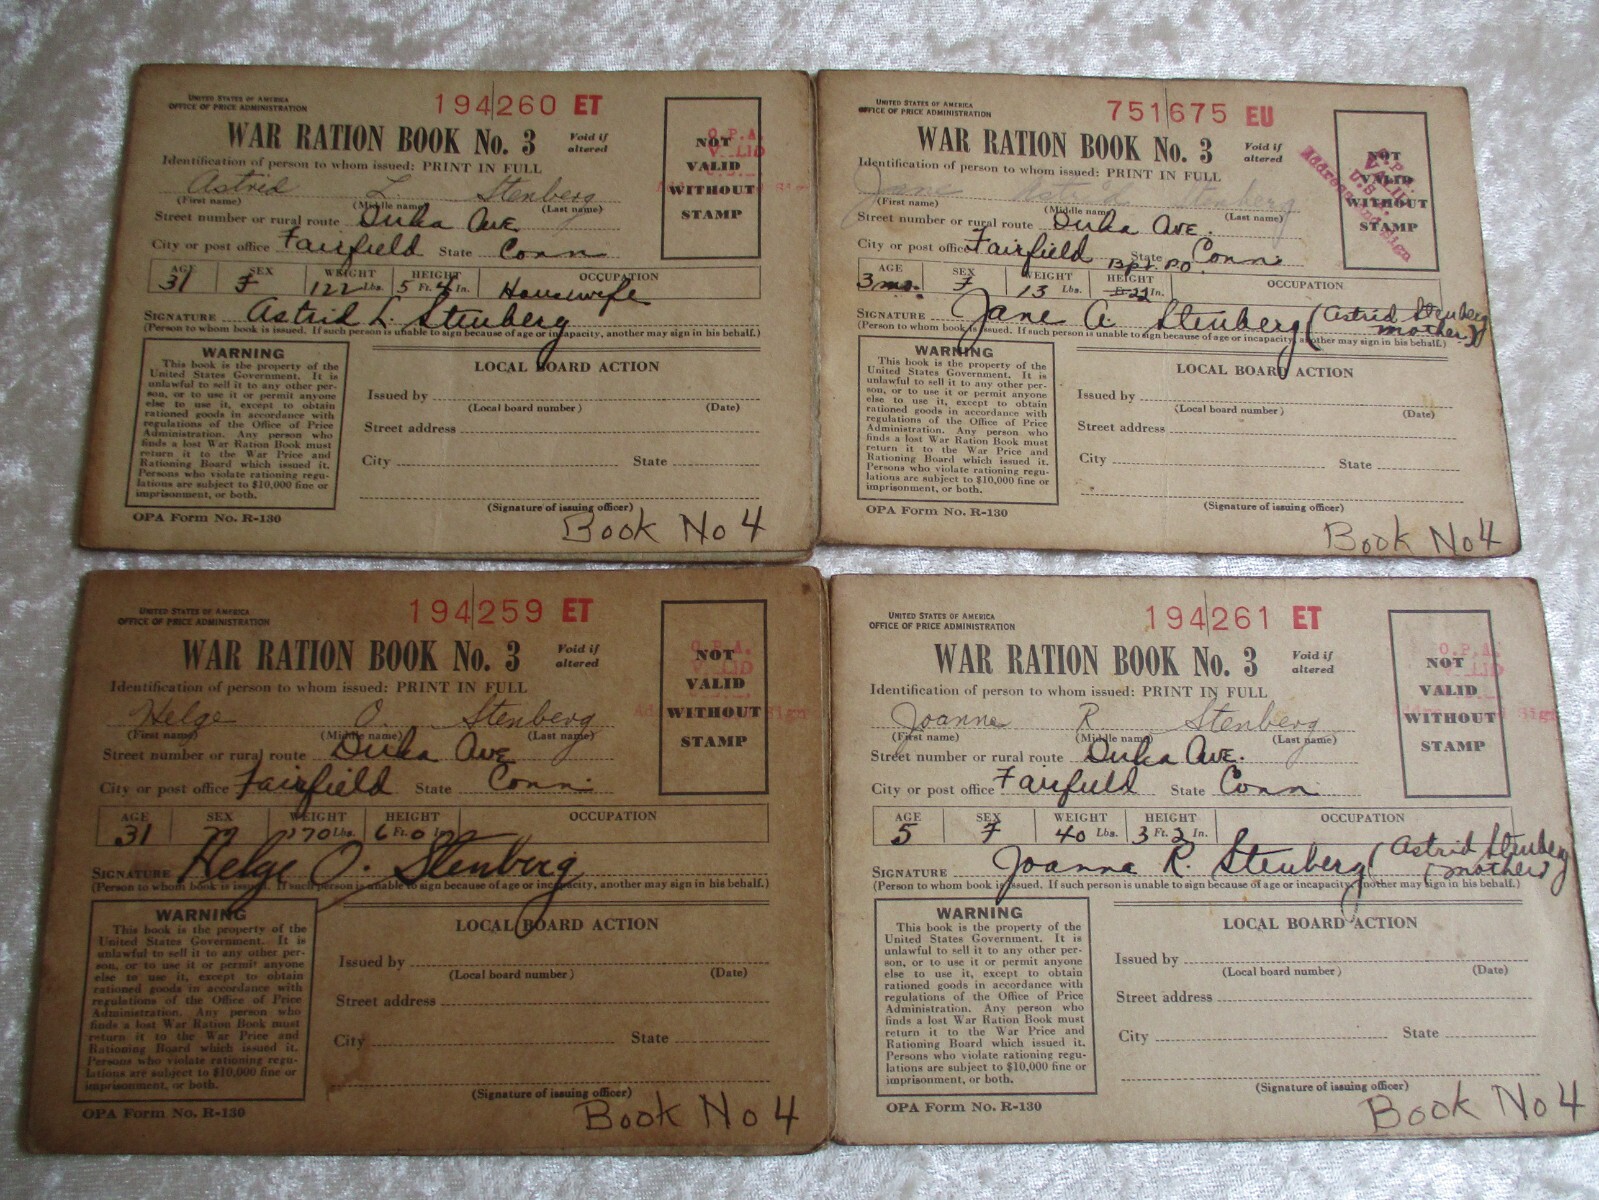 UNITED STATES OF AMERICA
OFFICE OF PRICE ADMINISTRATION
194260 ET
WAR RATION BOOK No. 3
Void if
altered
NOT
VALID
WITHOUT
STAMP
O.P.A.
Identification of person to whom issued: PRINT IN FULL
Astrid L. Stenberg
(First name) (Middle name) (Last name)
Street number or rural route Duka Ave
City or post office Fairfield State Conn
AGE SEX WEIGHT HEIGHT OCCUPATION
31 F 122 Lbs. 5 Ft. 4 In. Housewife
SIGNATURE Astrid L. Stenberg
(Person to whom book is issued. If such person is unable to sign because of age or incapacity, another may sign in his behalf.)
WARNING
This book is the property of the
United States Government. It is
unlawful to sell it to any other per-
son, or to use it or permit anyone
else to use it, except to obtain
rationed goods in accordance with
regulations of the Office of Price
Administration. Any person who
finds a lost War Ration Book must
return it to the War Price and
Rationing Board which issued it.
Persons who violate rationing regu-
lations are subject to $10,000 fine or
imprisonment, or both.
LOCAL BOARD ACTION
Issued by
(Local board number) (Date)
Street address
City State
(Signature of issuing officer)
OPA Form No. R-130
Book No 4
UNITED STATES OF AMERICA
OFFICE OF PRICE ADMINISTRATION
751675 EU
WAR RATION BOOK No. 3
Void if
altered
NOT
VALID
WITHOUT
STAMP
Identification of person to whom issued: PRINT IN FULL
Jane Astrid Stenberg
(First name) (Middle name) (Last name)
Street number or rural route Duka Ave.
City or post office Fairfield State Conn
Bpt. P.O.
AGE SEX WEIGHT HEIGHT OCCUPATION
3 mo. F 13 Lbs. 22 In.
SIGNATURE Jane A. Stenberg (Astrid Stenberg
mother)
(Person to whom book is issued. If such person is unable to sign because of age or incapacity, another may sign in his behalf.)
WARNING
This book is the property of the
United States Government. It is
unlawful to sell it to any other per-
son, or to use it or permit anyone
else to use it, except to obtain
rationed goods in accordance with
regulations of the Office of Price
Administration. Any person who
finds a lost War Ration Book must
return it to the War Price and
Rationing Board which issued it.
Persons who violate rationing regu-
lations are subject to $10,000 fine or
imprisonment, or both.
LOCAL BOARD ACTION
Issued by
(Local board number) (Date)
Street address
City State
(Signature of issuing officer)
OPA Form No. R-130
Book No 4
UNITED STATES OF AMERICA
OFFICE OF PRICE ADMINISTRATION
194259 ET
WAR RATION BOOK No. 3
Void if
altered
NOT
VALID
WITHOUT
STAMP
O.P.A.
Identification of person to whom issued: PRINT IN FULL
Helge O. Stenberg
(First name) (Middle name) (Last name)
Street number or rural route Duka Ave
City or post office Fairfield State Conn.
AGE SEX WEIGHT HEIGHT OCCUPATION
31 M 170 Lbs. 6 Ft. 0 In.
SIGNATURE Helge O. Stenberg
(Person to whom book is issued. If such person is unable to sign because of age or incapacity, another may sign in his behalf.)
WARNING
This book is the property of the
United States Government. It is
unlawful to sell it to any other per-
son, or to use it or permit anyone
else to use it, except to obtain
rationed goods in accordance with
regulations of the Office of Price
Administration. Any person who
finds a lost War Ration Book must
return it to the War Price and
Rationing Board which issued it.
Persons who violate rationing regu-
lations are subject to $10,000 fine or
imprisonment, or both.
LOCAL BOARD ACTION
Issued by
(Local board number) (Date)
Street address
City State
(Signature of issuing officer)
OPA Form No. R-130
Book No 4
UNITED STATES OF AMERICA
OFFICE OF PRICE ADMINISTRATION
194261 ET
WAR RATION BOOK No. 3
Void if
altered
NOT
VALID
WITHOUT
STAMP
O.P.A.
Identification of person to whom issued: PRINT IN FULL
Joanne R Stenberg
(First name) (Middle name) (Last name)
Street number or rural route Duka Ave.
City or post office Fairfield State Conn
AGE SEX WEIGHT HEIGHT OCCUPATION
5 F 40 Lbs. 3 Ft. 2 In.
SIGNATURE Joanna R. Stenberg (Astrid Stenberg
(mother)
(Person to whom book is issued. If such person is unable to sign because of age or incapacity, another may sign in his behalf.)
WARNING
This book is the property of the
United States Government. It is
unlawful to sell it to any other per-
son, or to use it or permit anyone
else to use it, except to obtain
rationed goods in accordance with
regulations of the Office of Price
Administration. Any person who
finds a lost War Ration Book must
return it to the War Price and
Rationing Board which issued it.
Persons who violate rationing regu-
lations are subject to $10,000 fine or
imprisonment, or both.
LOCAL BOARD ACTION
Issued by
(Local board number) (Date)
Street address
City State
(Signature of issuing officer)
OPA Form No. R-130
Book No 4